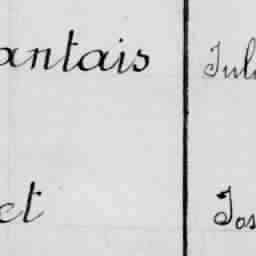 antais Juli
et Jos